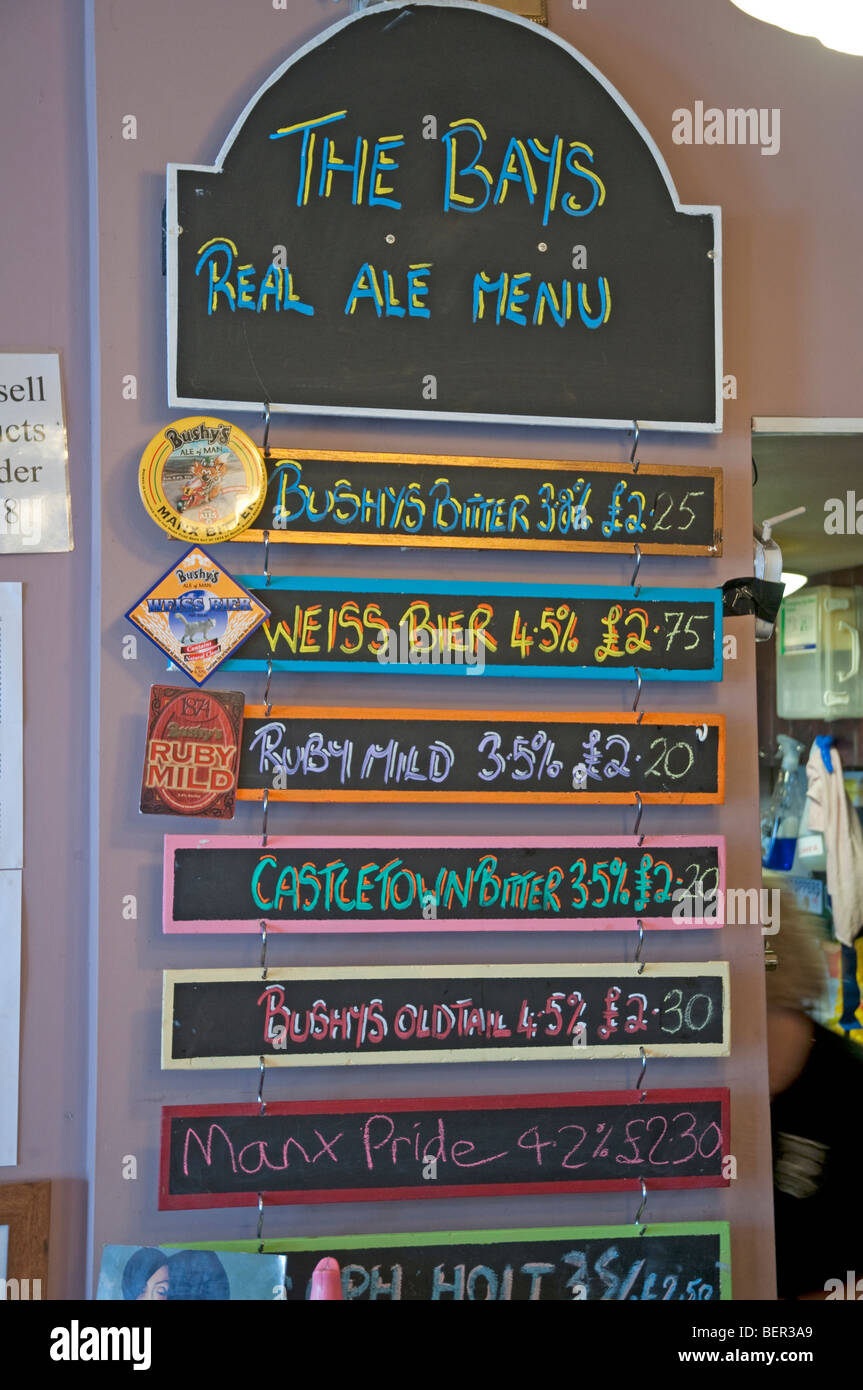 THE BAYS
REAL ALE MENU
sell
ucts
der
8
Bushy's
ALE of MAN
MANX BITTER
BUSHYS BITTER 3.8% £2.25
Bushy's
ALE OF MAN
WEISS BIER
WEISS BIER 4.5% £2.75
1874
Bushy's
RUBY
MILD
RUBY MILD 3.5% £2.20
CASTLETOWN BITTER 3.5% £2.20
BUSHYS OLDTAIL 4.5% £2.30
Manx Pride 4.2% £2.30
PH HOLT £2.50
alamy stock photo
BER3A9
www.alamy.com